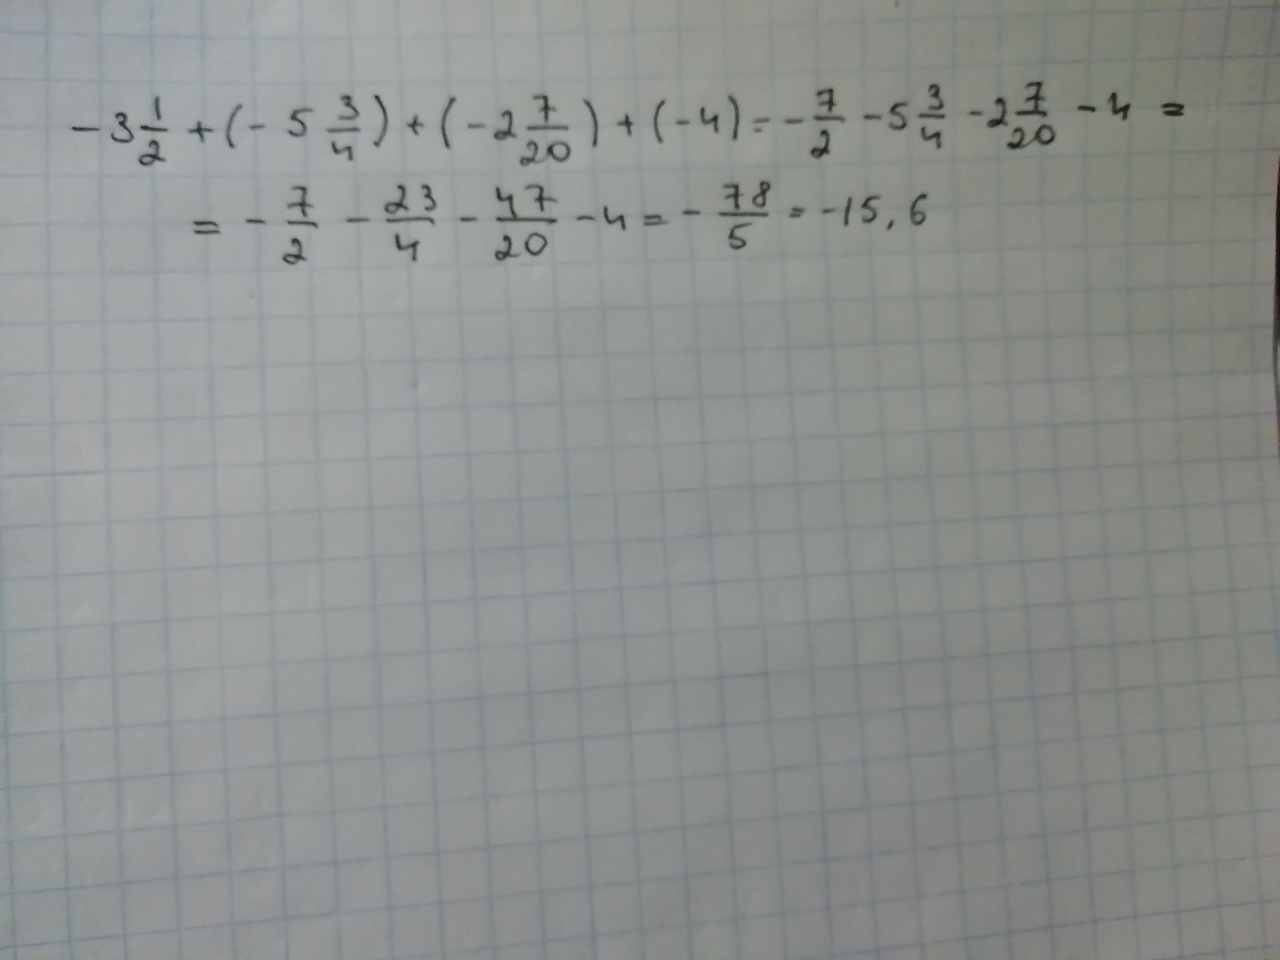 -3 1/2 + (- 5 3/4) + (-2 7/20) + (-4) = - 7/2 - 5 3/4 - 2 7/20 - 4 =
= - 7/2 - 23/4 - 47/20 - 4 = - 78/5 = -15,6